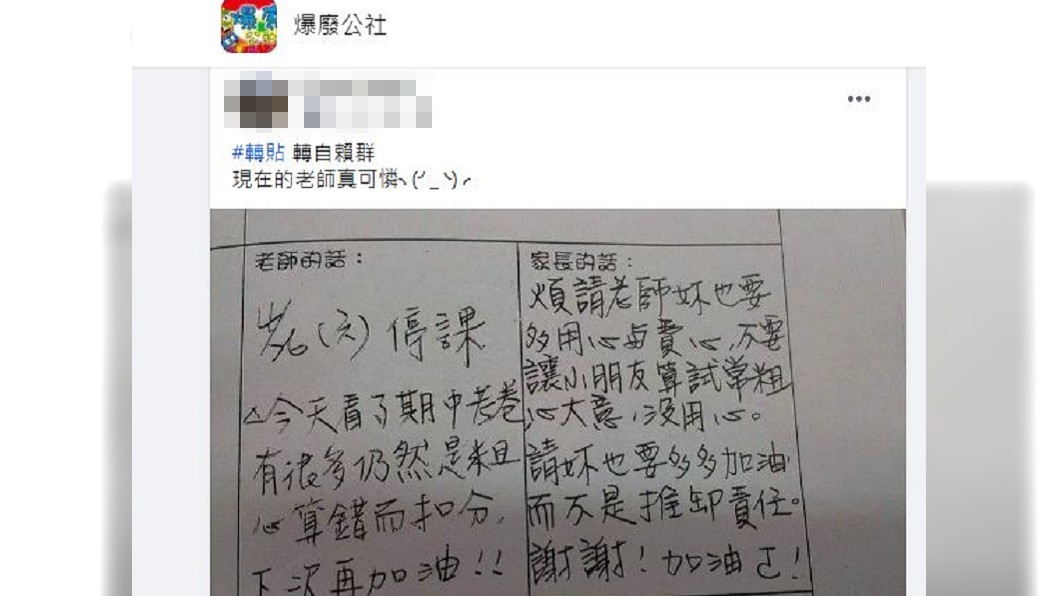 爆廢公社
#轉貼 轉自賴群
現在的老師真可憐
老師的話：
(六) 停課
△今天看了期中考卷
有很多仍然是粗
心算錯而扣分,
下次再加油!!
家長的話：
煩請老師妳也要
多用心与費心,不要
讓小朋友算試常粗
心大意,沒用心。
請妳也要多多加油
而不是推卸責任。
謝謝!加油ㄛ!